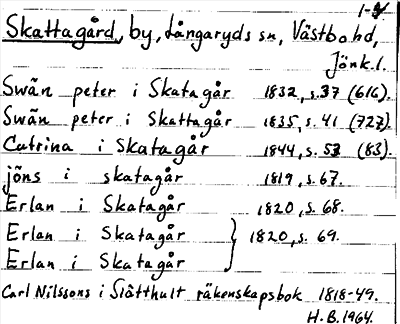 1-2
Skattagård, by, Långaryds sn, Västbo hd,
Jönk.l.
Swän peter i Skatagår 1832, s.37 (616).
Swän peter i Skattagår 1835, s.41 (727).
Catrina i Skatagår 1844, s.53 (83).
jöns i skatagår 1819, s.67.
Erlan i Skatagår 1820, s.68.
Erlan i Skatagår } 1820, s.69.
Erlan i Skatagår
Carl Nilssons i Slätthult räkenskapsbok 1818-49.
H.B.1964.